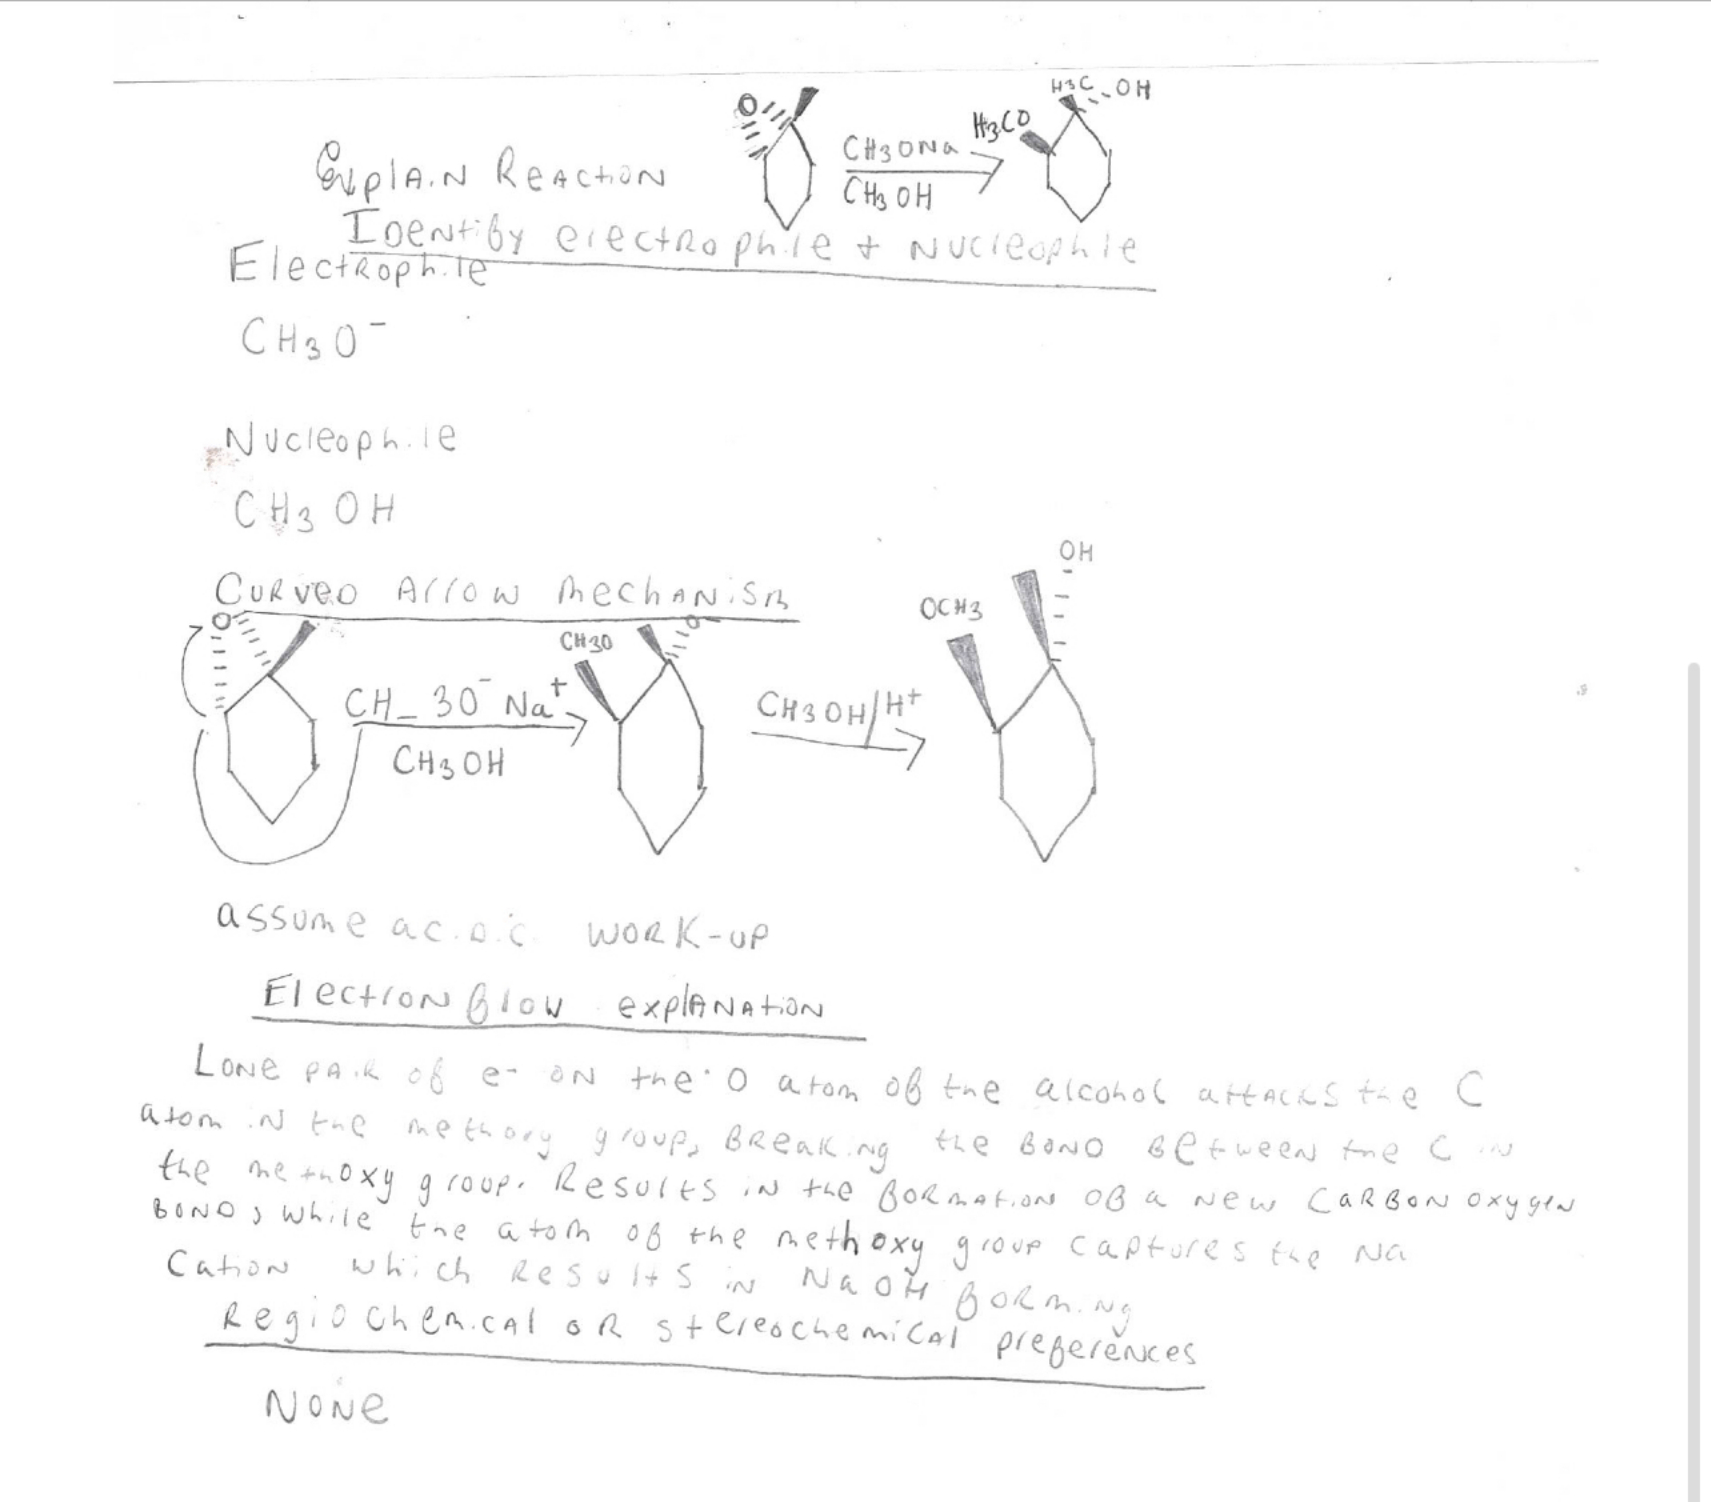 H3C OH
O H3CO
CH3ONa
Explain Reaction CH3OH
Identify electrophile + Nucleophile
Electrophile
CH3O⁻
Nucleophile
CH3OH
OH
Curved Arrow Mechanism
OCH3
O CH3O O⁻
CH_3O⁻ Na⁺ CH3OH/H⁺
CH3OH
assume acidic work-up
Electron flow explanation
Lone pair of e- on the O atom of the alcohol attacks the C
atom in the methoxy group, Breaking the Bond Between the C in
the methoxy group. Results in the formation of a new carbon oxygen
Bond, while the atom of the methoxy group captures the Na
Cation which Results in NaOH forming
Regiochemical or stereochemical preferences
None